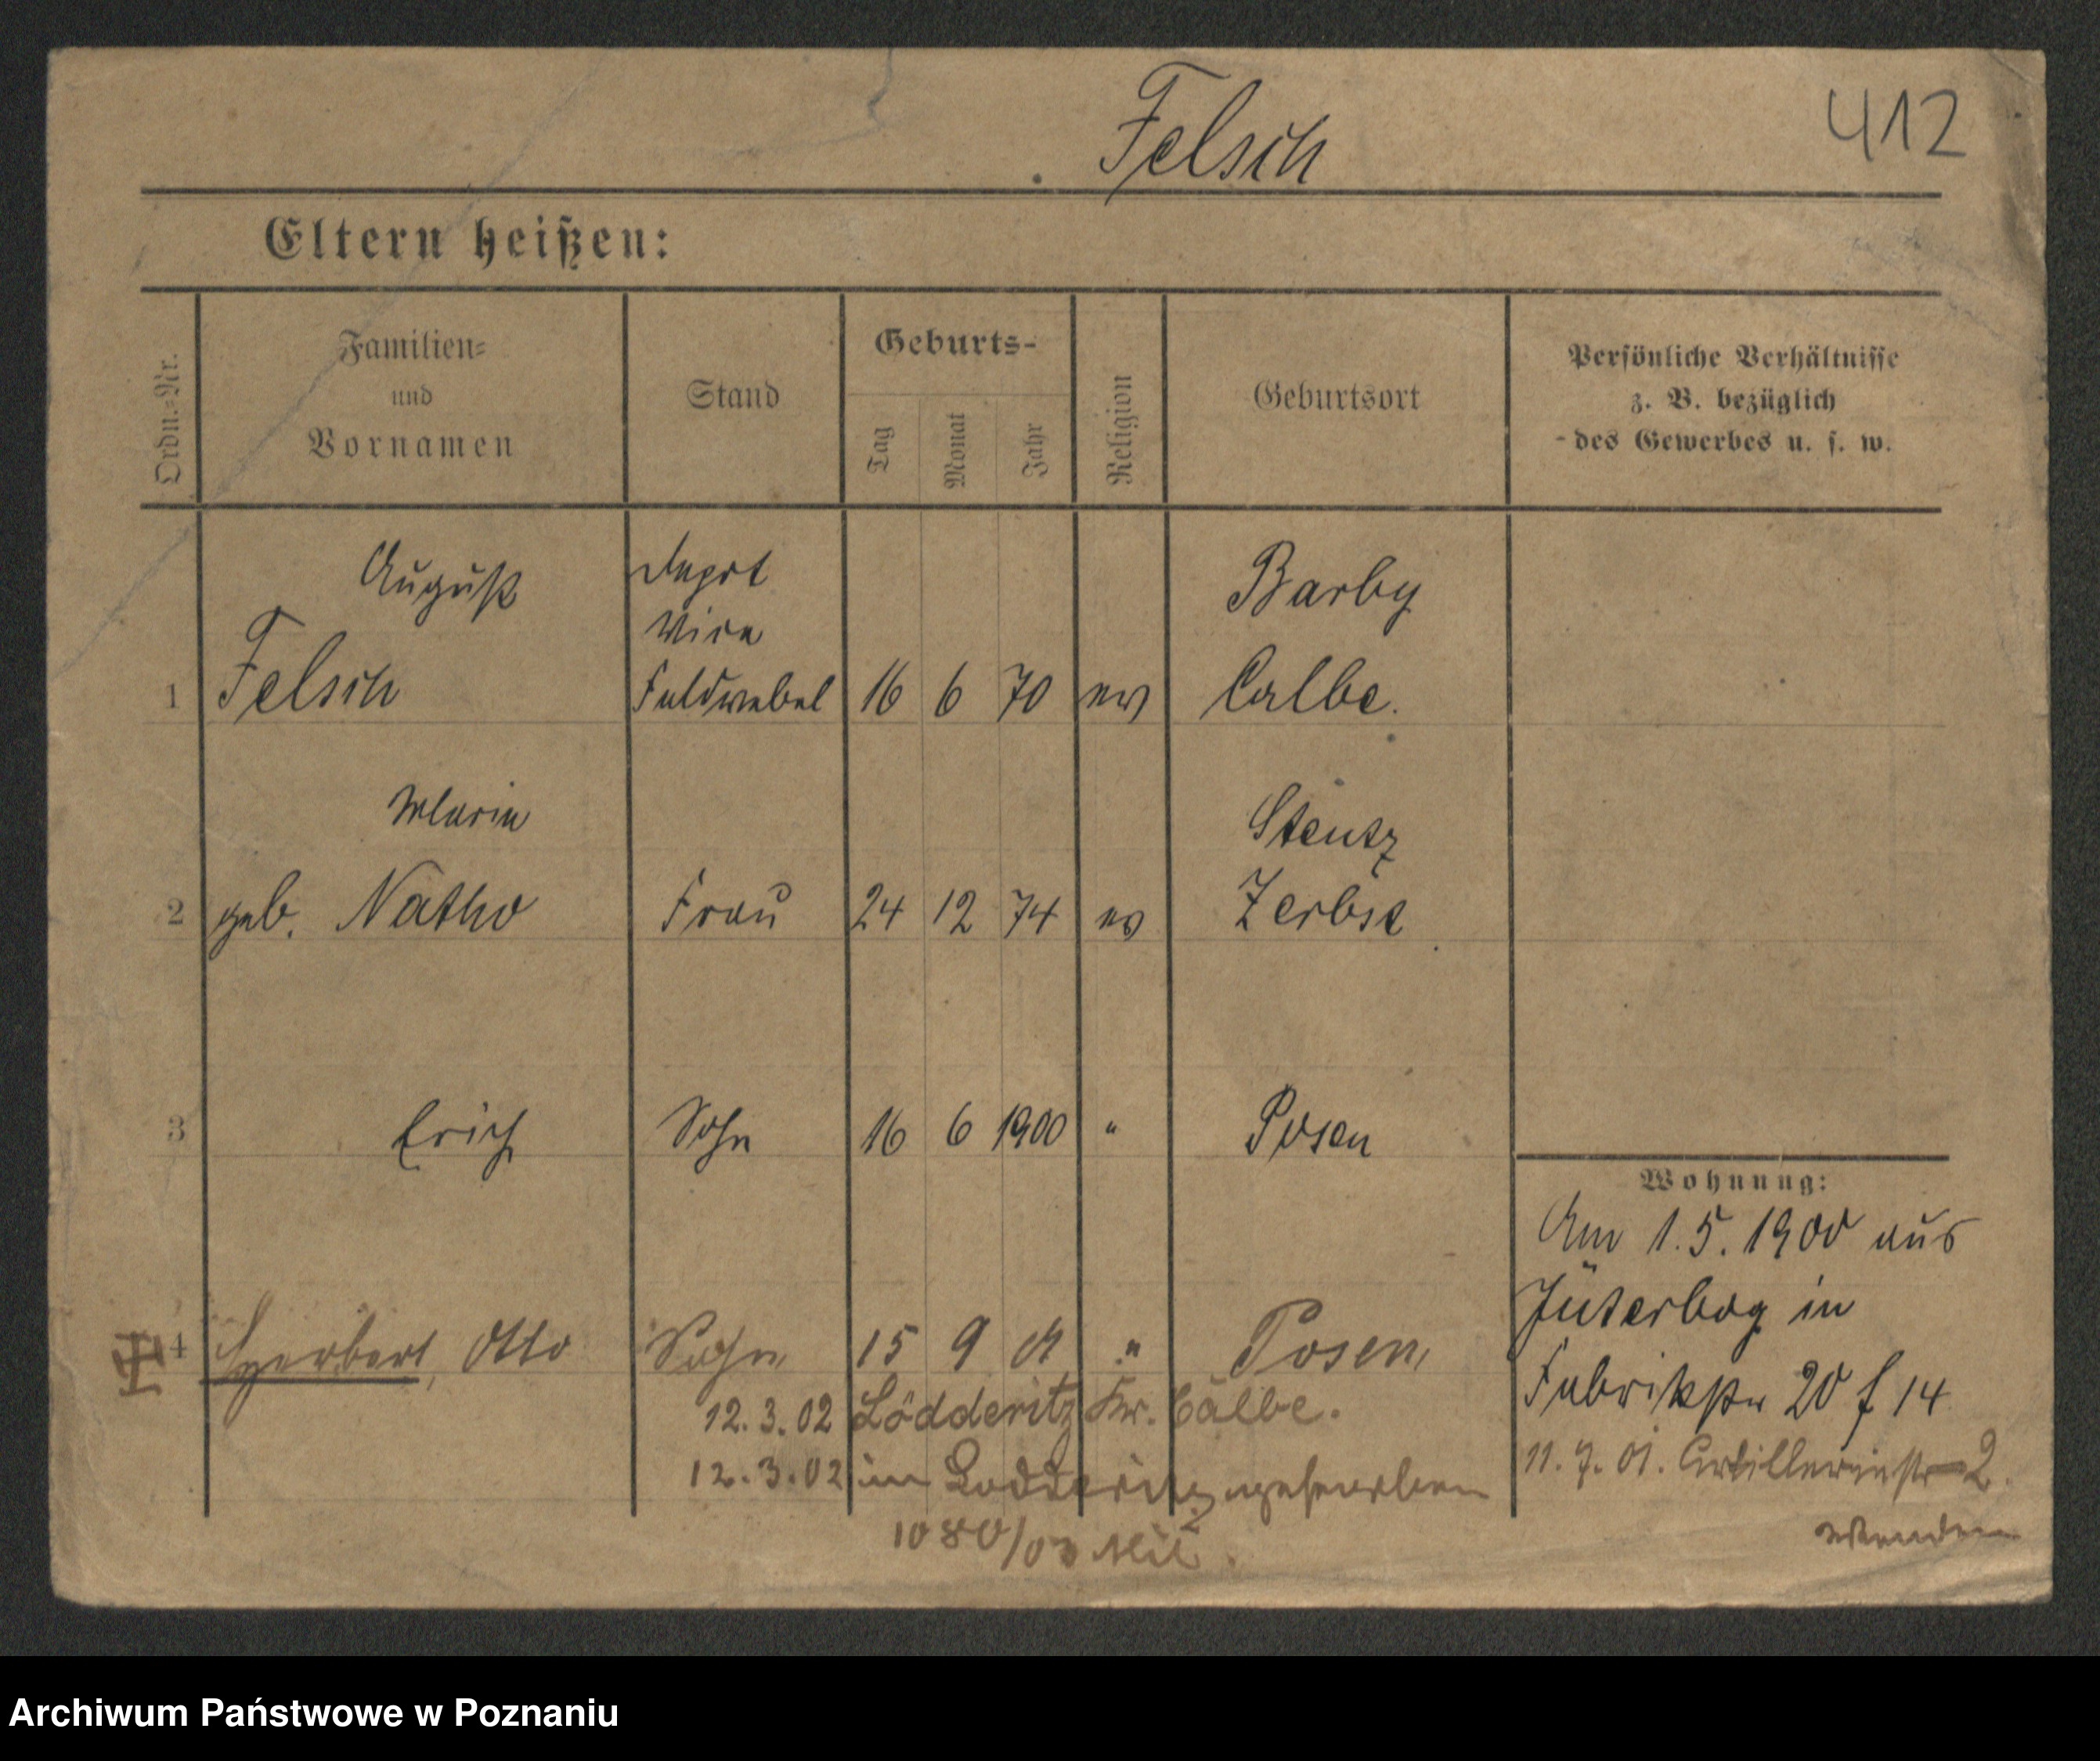 412
Felsch
Eltern heißen:
Ordn.-Nr.
Familien-
und
Vornamen
Stand
Geburts-
Tag
Monat
Jahr
Religion
Geburtsort
Persönliche Verhältnisse
z. B. bezüglich
des Gewerbes u. s. w.
August
Vice
Barby
1 Felsch Feldwebel 16 6 70 ev Calbe.
Marie
Steutz
2 geb. Natho Frau 24 12 74 ev Zerbst
3 Erich Sohn 16 6 1900 " Posen
4 Herbert, Otto Sohn 15 9 01 " Posen
12.3.02 Lödderitz Kr. Calbe.
12.3.02 in Lödderitz gestorben
1080/03 Mil
Wohnung:
Am 1.5.1900 aus
Jüterbog in
Fabrikstr 20 f 14
11.7.01. Artilleriestr 2.
Wenden
Archiwum Państwowe w Poznaniu